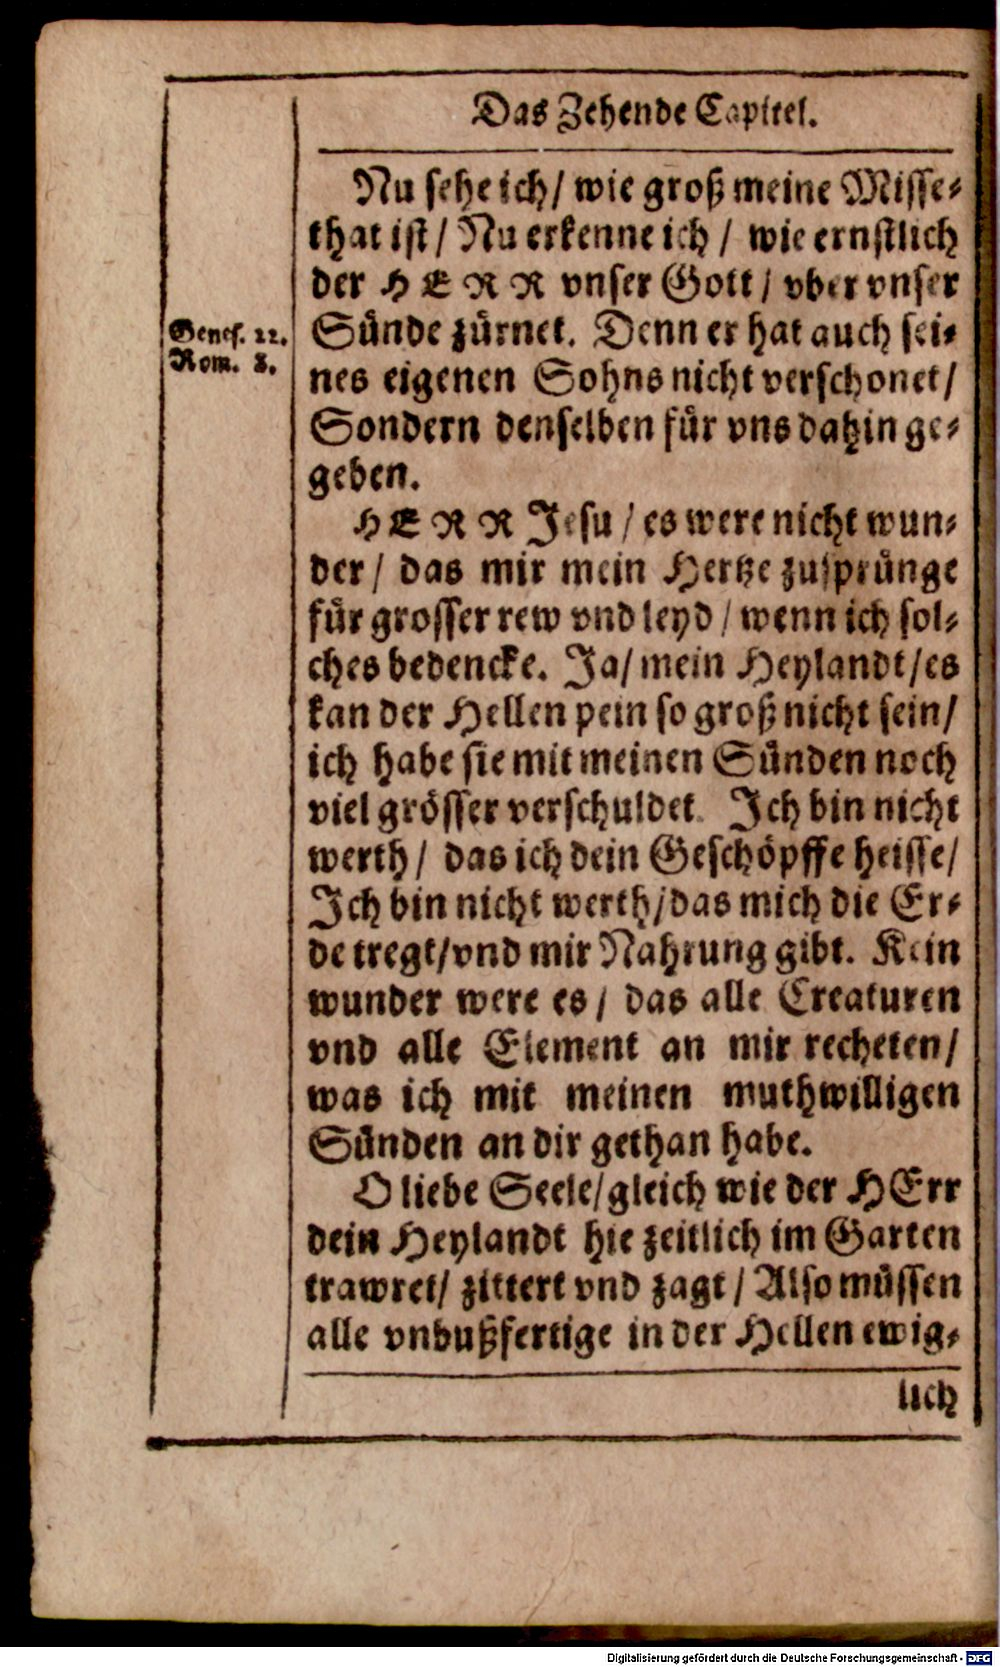 Das Zehende Capitel.
Nu sehe ich/ wie groß meine Misse-
that ist/ Nu erkenne ich/ wie ernstlich
der HERR vnser Gott/ vber vnser
Genes. 22.
Sünde zürnet. Denn er hat auch sei-
Rom. 8.
nes eigenen Sohns nicht verschonet/
Sondern denselben für vns dahin ge-
geben.
HERR Jesu/ es were nicht wun-
der/ das mir mein Hertze zusprünge
für grosser rew vnd leyd/ wenn ich sol-
ches bedencke. Ja/ mein Heylandt/ es
kan der Hellen pein so groß nicht sein/
ich habe sie mit meinen Sünden noch
viel grösser verschuldet. Ich bin nicht
werth/ das ich dein Geschöpffe heisse/
Ich bin nicht werth/ das mich die Er-
de tregt/ vnd mir Nahrung gibt. Kein
wunder were es/ das alle Creaturen
vnd alle Element an mir recheten/
was ich mit meinen muthwilligen
Sünden an dir gethan habe.
O liebe Seele/ gleich wie der HErr
dein Heylandt hie zeitlich im Garten
trawret/ zittert vnd zagt/ Also müssen
alle vnbußfertige in der Hellen ewig-
lich
Digitalisierung gefördert durch die Deutsche Forschungsgemeinschaft - DFG